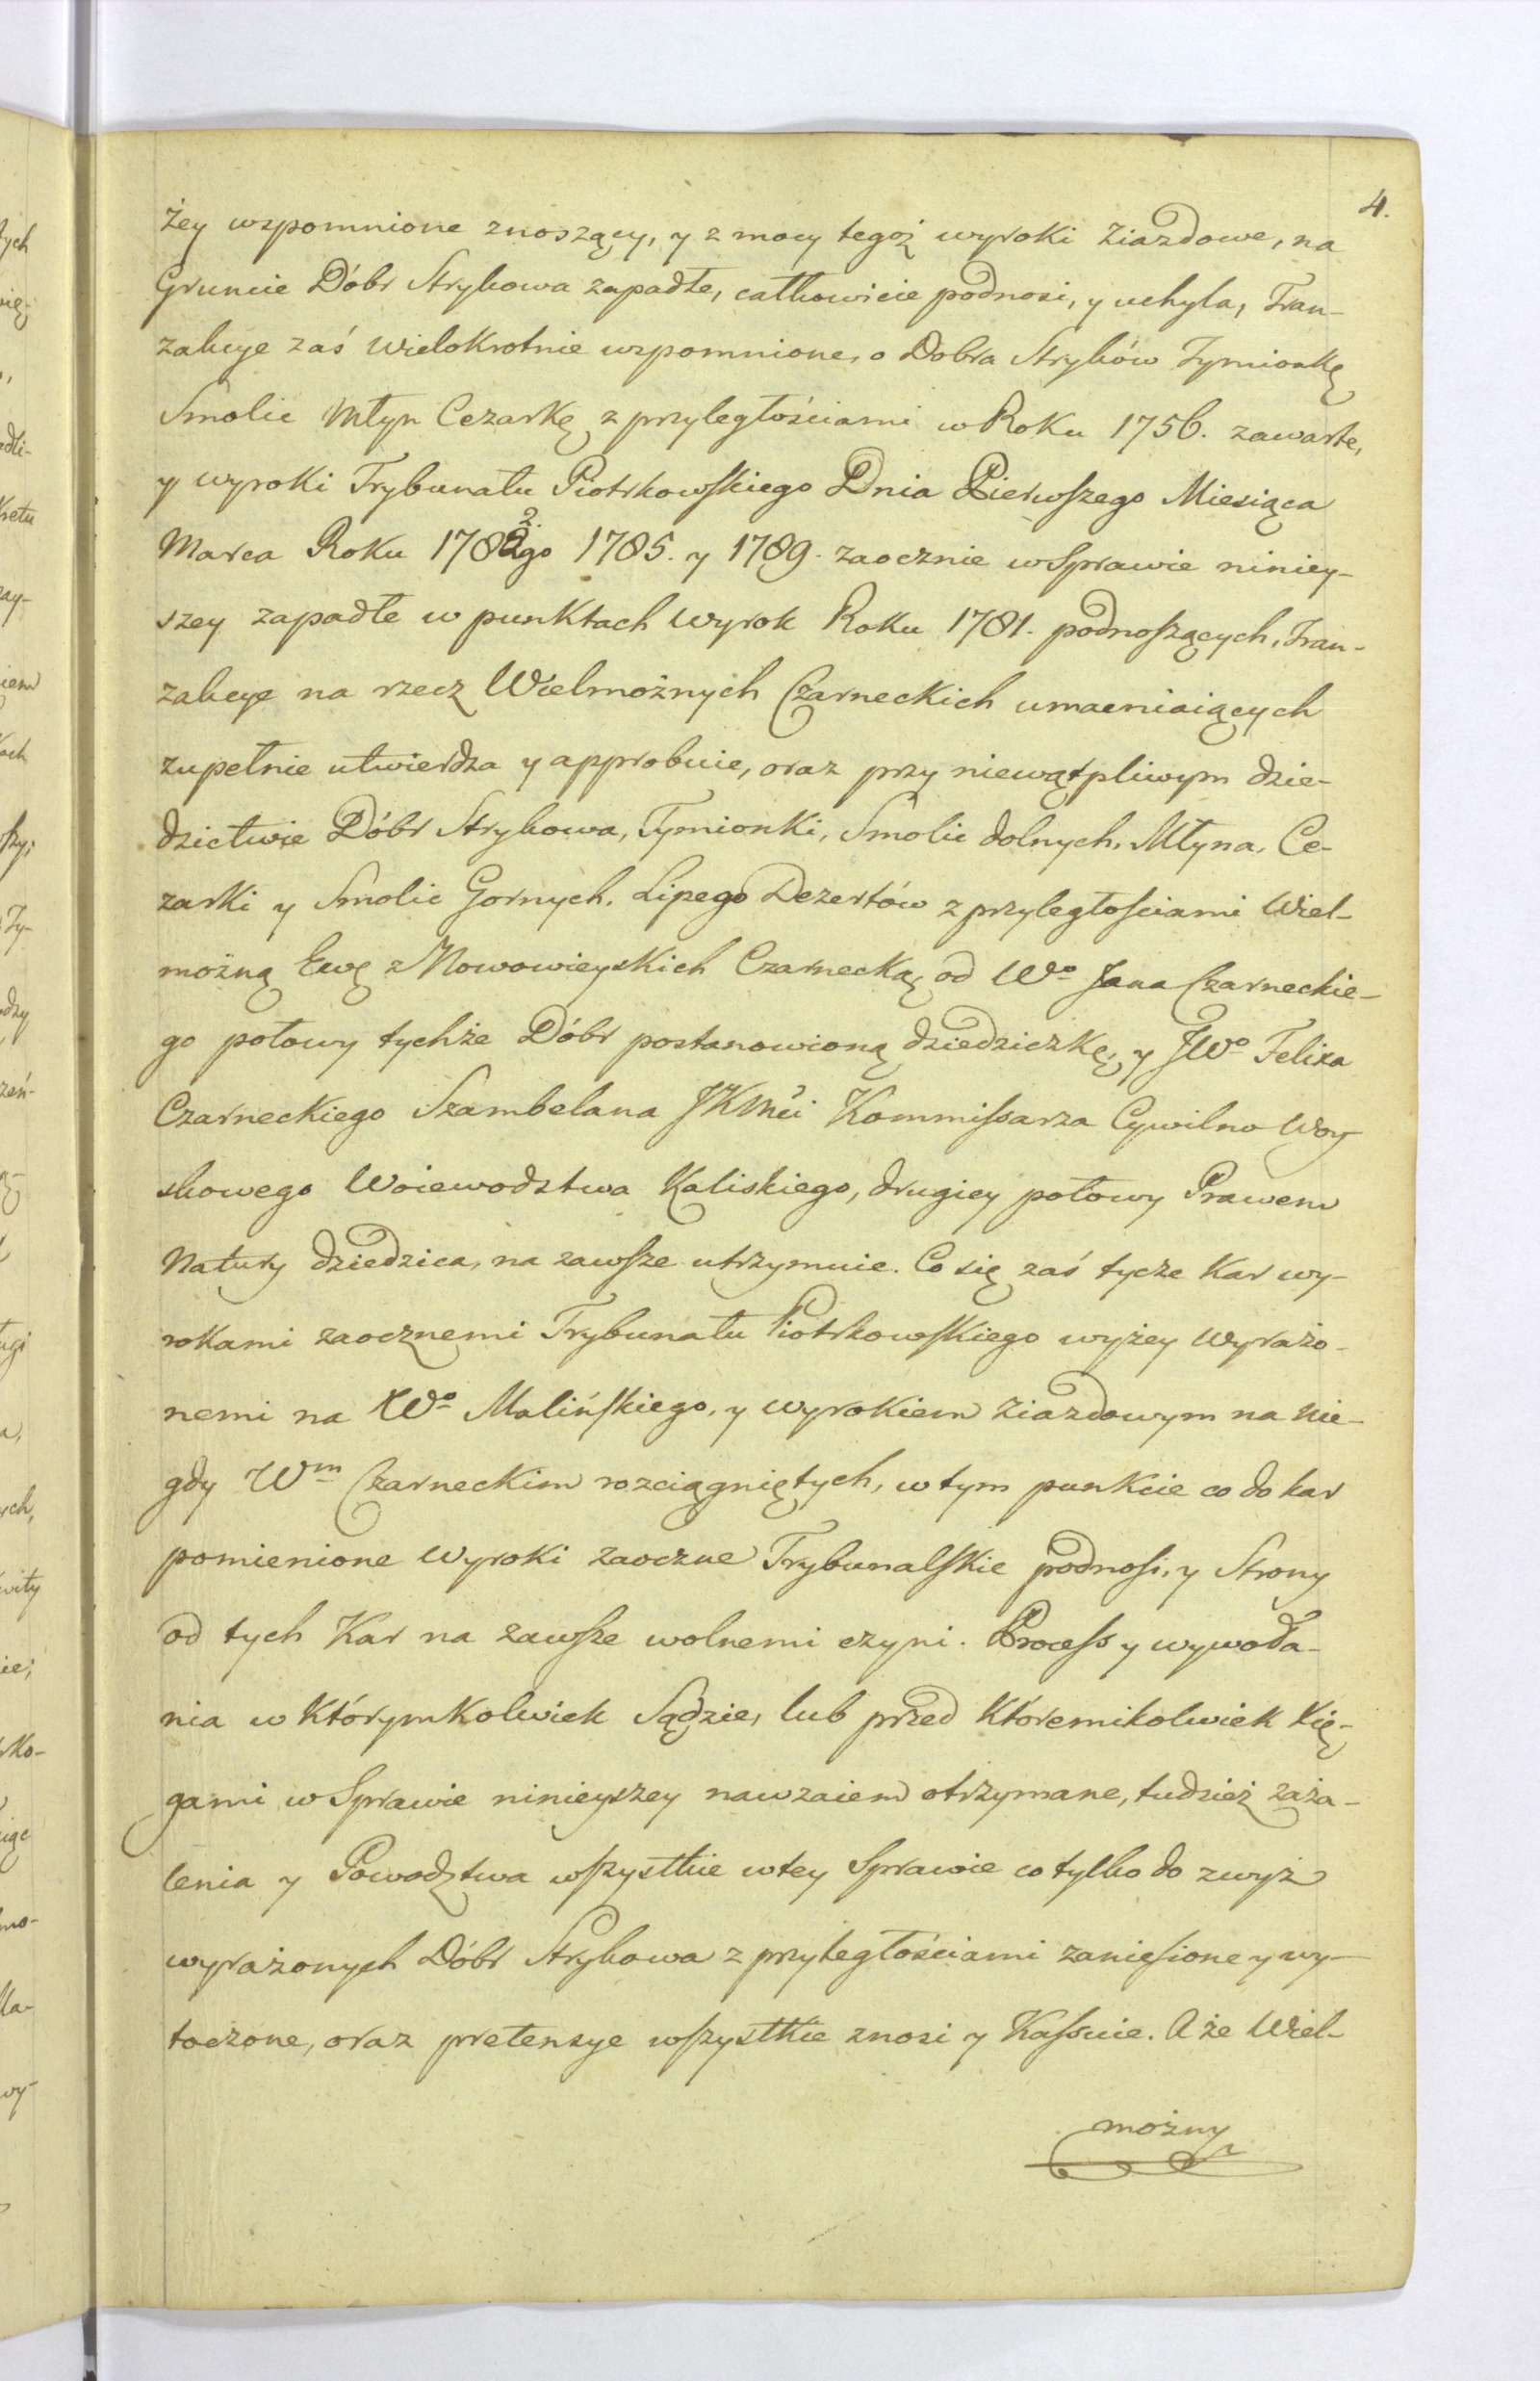 4.
żey wspomnione znoszący, y z mocy tegoż wyroki Ziazdowe, na
Gruncie Dóbr Strykowa zapadłe, całkowicie podnosi, y uchyla, Tran-
zakcye zaś wielokrotnie wspomnione, o Dobra Stryków Tymionkę
Smolic Młyn Cezarkę z przyległościami w Roku 1756. zawarte,
y wyroki Trybunału Piotrkowskiego Dnia Pierwszego Miesiąca
Marca Roku 1782go 1785. y 1789. zaocznie w Sprawie niniey-
szey zapadłe w punktach wyrok Roku 1781. podnoszących, Tran-
zakcye na rzecz Wielmożnych Czarneckich umacniaiących
zupełnie utwierdza y approbuie, oraz przy niewątpliwym dzie-
dzictwie Dóbr Strykowa, Tymionki, Smolic dolnych, Młyna, Ce-
zarki y Smolic Gornych, Lipego Dezertów z przyległościami Wiel-
możną Ewę z Nowowieyskich Czarnecką od Wo Jana Czarneckie-
go połowy tychże Dóbr postanowioną dziedziczkę, y JWo Felixa
Czarneckiego Szambelana JKMci Kommissarza Cywilno Woy
skowego Woiewodstwa Kaliskiego, drugiey połowy Prawem
Natury dziedzica, na zawsze utrzymuie. Co się zaś tycze Kar wy-
rokami zaocznemi Trybunału Piotrkowskiego wyżey wyrażo-
nemi na Wo Malińskiego, y wyrokiem Ziazdowym na nie-
gdy Wm Czarneckim rozciągniętych, w tym punkcie co do kar
pomienione wyroki zaoczne Trybunalskie podnosi, y Strony
od tych Kar na zawsze wolnemi czyni. Process y wywoła-
nia w którymkolwiek Sądzie, lub przed któremikolwiek Xię-
gami w Sprawie ninieyszey nawzaiem otrzymane, tudzież zaża-
lenia y Powodztwa wszystkie w tey Sprawie co tylko do zwyż
wyrażonych Dóbr Strykowa z przyległościami zaniesione y wy-
toczone, oraz pretensye wszystkie znosi y Kassuie. A że Wiel-
możny